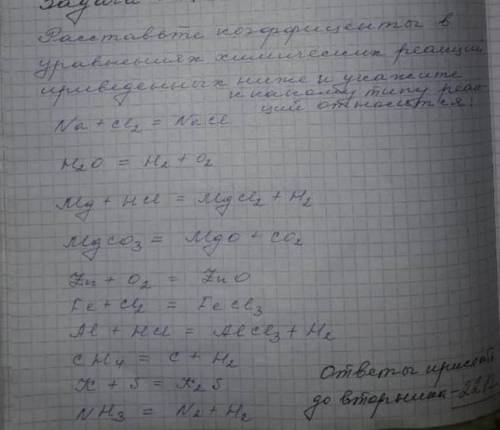 Задача
Расставьте коэффициенты в
уравнениях химических реакций
приведенных ниже и укажите
к какому типу реак-
ций относятся!
Na + Cl2 = NaCl
H2O = H2 + O2
Mg + HCl = MgCl2 + H2
MgCO3 = MgO + CO2
Zn + O2 = ZnO
Fe + Cl2 = FeCl3
Al + HCl = AlCl3 + H2
CH4 = C + H2
K + S = K2S
NH3 = N2 + H2
Ответы
до вторника